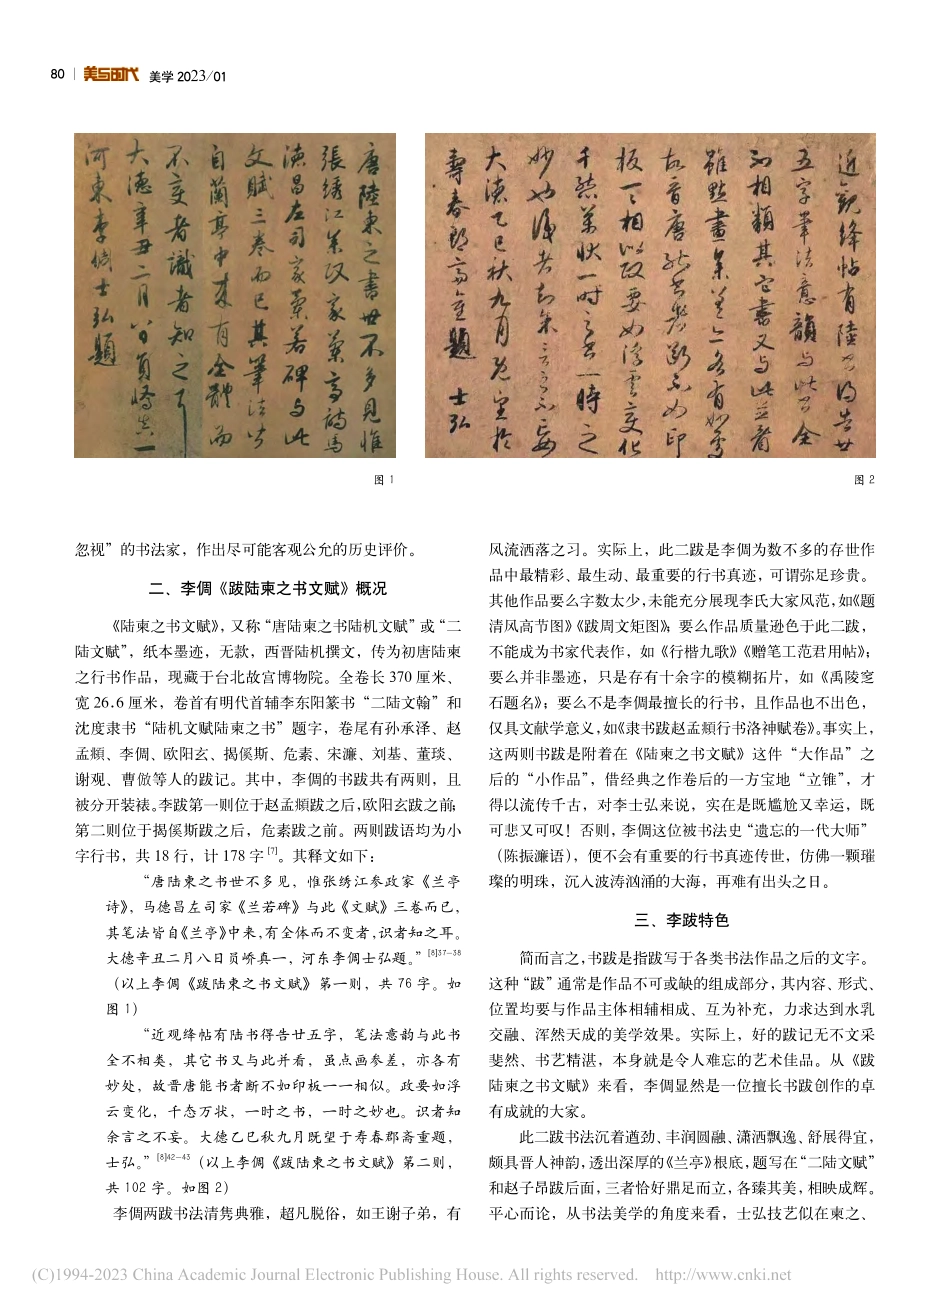 80 美与时代 美学 2023/01
唐陸柬之書世不多見惟
張绣江参政家蘭亭詩馬
德昌左司家蘭若碑与此
文賦三卷而已其筆法皆
自蘭亭中来有全體而
不变者識者知之耳
大德辛丑二月八日員嶠真一
河東李倜士弘題
近觀絳帖有陸書得告廿
五字筆法意韻与此書全
不相類其它書又与此並看
雖點畫参差亦各有妙處
故晋唐能書者斷不如印
板一一相似政要如浮雲变化
千態萬狀一時之書一時之
妙也識者知余言之不妄
大德乙巳秋九月既望於
壽春郡斋重題 士弘
图 1
图 2
忽视”的书法家，作出尽可能客观公允的历史评价。
二、李倜《跋陆柬之书文赋》概况
《陆柬之书文赋》，又称“唐陆柬之书陆机文赋”或“二
陆文赋”，纸本墨迹，无款，西晋陆机撰文，传为初唐陆柬
之行书作品，现藏于台北故宫博物院。全卷长 370 厘米、
宽 26.6 厘米，卷首有明代首辅李东阳篆书“二陆文翰”和
沈度隶书“陆机文赋陆柬之书”题字，卷尾有孙承泽、赵
孟頫、李倜、欧阳玄、揭傒斯、危素、宋濂、刘基、董琰、
谢观、曹倣等人的跋记。其中，李倜的书跋共有两则，且
被分开装裱。李跋第一则位于赵孟頫跋之后，欧阳玄跋之前；
第二则位于揭傒斯跋之后，危素跋之前。两则跋语均为小
字行书，共 18 行，计 178 字 [7]。其释文如下：
“唐陆柬之书世不多见，惟张绣江参政家《兰亭
诗》，马德昌左司家《兰若碑》与此《文赋》三卷而已，
其笔法皆自《兰亭》中来，有全体而不变者，识者知之耳。
大德辛丑二月八日员峤真一，河东李倜士弘题。”[8]37-38
（以上李倜《跋陆柬之书文赋》第一则，共 76 字。如
图 1）
“近观绛帖有陆书得告廿五字，笔法意韵与此书
全不相类，其它书又与此并看，虽点画参差，亦各有
妙处，故晋唐能书者断不如印板一一相似。政要如浮
云变化，千态万状，一时之书，一时之妙也。识者知
余言之不妄。大德乙巳秋九月既望于寿春郡斋重题，
士弘。”[8]42-43（以上李倜《跋陆柬之书文赋》第二则，
共 102 字。如图 2）
李倜两跋书法清隽典雅，超凡脱俗，如王谢子弟，有
风流洒落之习。实际上，此二跋是李倜为数不多的存世作
品中最精彩、最生动、最重要的行书真迹，可谓弥足珍贵。
其他作品要么字数太少，未能充分展现李氏大家风范，如《题
清风高节图》《跋周文矩图》；要么作品质量逊色于此二跋，
不能成为书家代表作，如《行楷九歌》《赠笔工范君用帖》；
要么并非墨迹，只是存有十余字的模糊拓片，如《禹陵窆
石题名》；要么不是李倜最擅长的行书，且作品也不出色，
仅具文献学意义，如《隶书跋赵孟頫行书洛神赋卷》。事实上，
这两则书跋是附着在《陆柬之书文赋》这件“大作品”之
后的“小作品”，借经典之作卷后的一方宝地“立锥”，才
得以流传千古，对李士弘来说，实在是既尴尬又幸运，既
可悲又可叹！否则，李倜这位被书法史“遗忘的一代大师”
（陈振濂语），便不会有重要的行书真迹传世，仿佛一颗璀
璨的明珠，沉入波涛汹涌的大海，再难有出头之日。
三、李跋特色
简而言之，书跋是指跋写于各类书法作品之后的文字。
这种“跋”通常是作品不可或缺的组成部分，其内容、形式、
位置均要与作品主体相辅相成、互为补充，力求达到水乳
交融、浑然天成的美学效果。实际上，好的跋记无不文采
斐然、书艺精湛，本身就是令人难忘的艺术佳品。从《跋
陆柬之书文赋》来看，李倜显然是一位擅长书跋创作的卓
有成就的大家。
此二跋书法沉着遒劲、丰润圆融、潇洒飘逸、舒展得宜，
颇具晋人神韵，透出深厚的《兰亭》根底，题写在“二陆文赋”
和赵子昂跋后面，三者恰好鼎足而立，各臻其美，相映成辉。
平心而论，从书法美学的角度来看，士弘技艺似在柬之、
(C)1994-2023 China Academic Journal Electronic Publishing House. All rights reserved. http://www.cnki.net